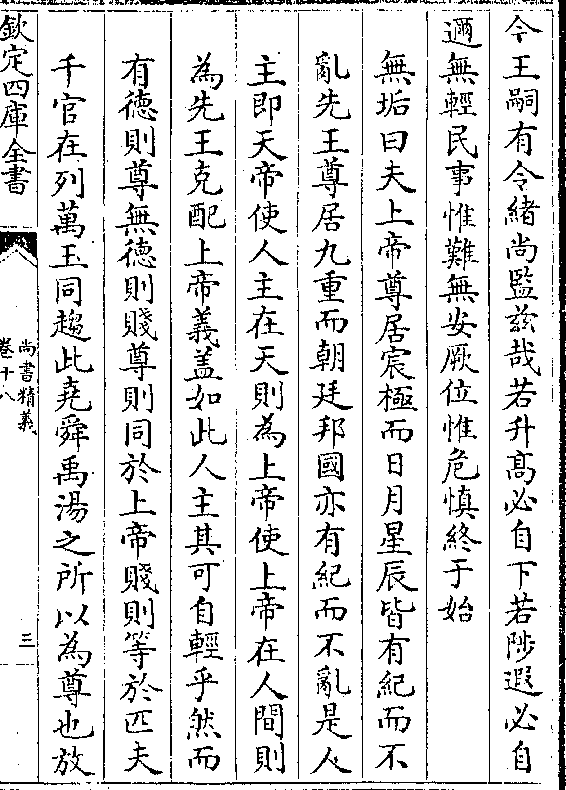 今王嗣有令緒尚監兹哉若升髙必自下若陟遐必自
邇無輕民事惟難無安厥位惟危慎終于始
無垢曰夫上帝尊居宸極而日月星辰皆有紀而不
亂先王尊居九重而朝廷邦國亦有紀而不亂是人
主即天帝使人主在天則為上帝使上帝在人間則
為先王克配上帝義盖如此人主其可自輕乎然而
有徳則尊無徳則賤尊則同於上帝賤則等於匹夫
千官在列萬玉同趨此堯舜禹湯之所以為尊也放
欽定四庫全書
尚書精義
卷十八
三